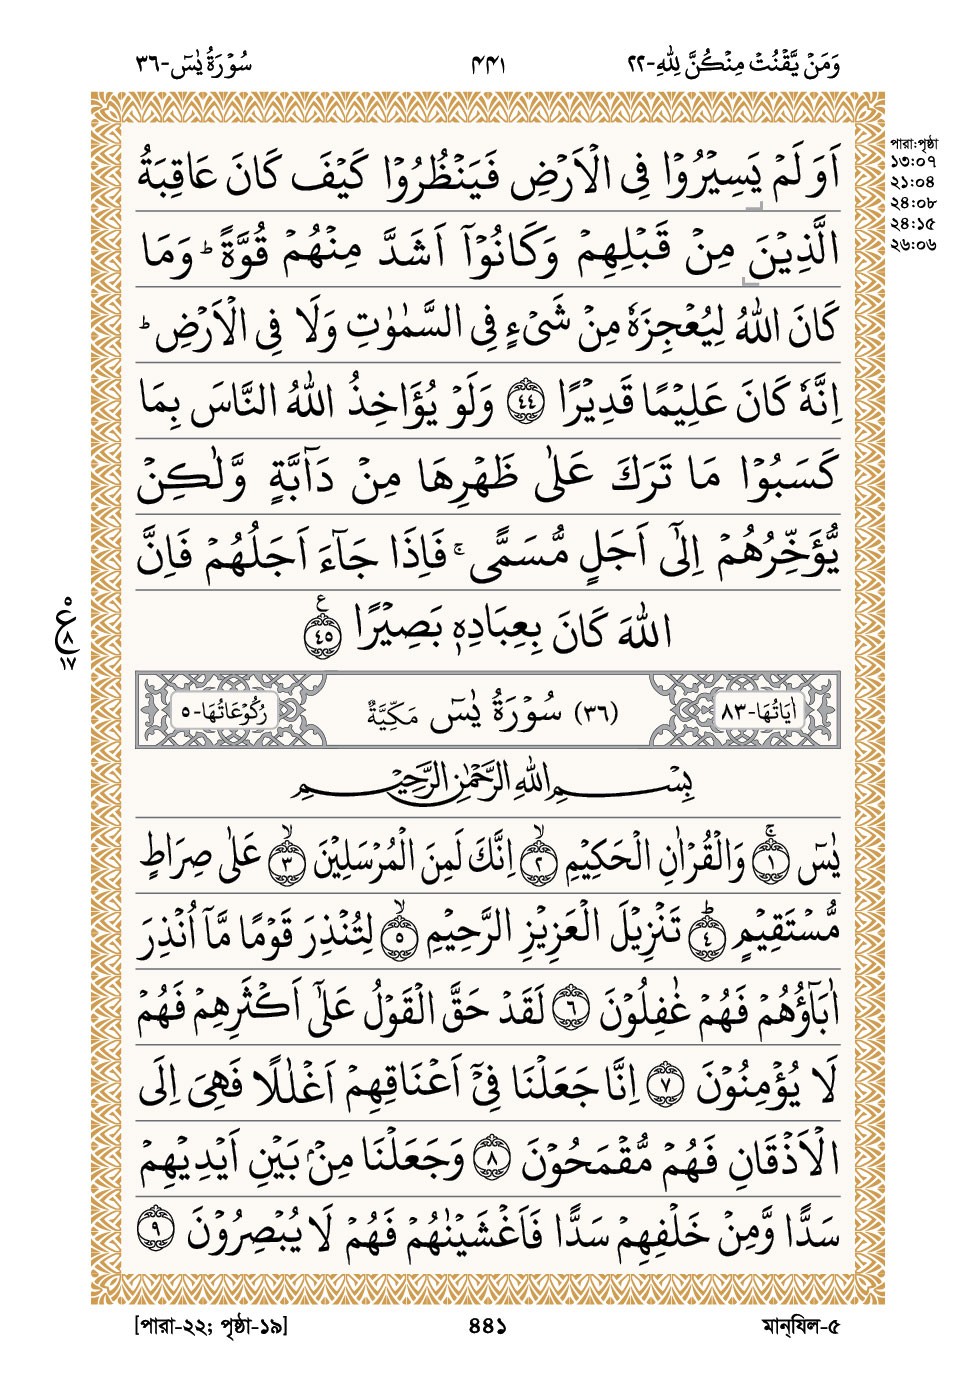 وَمَنۡ يَّقۡنُتۡ مِنۡكُنَّ لِلّٰهِ-٢٢
٤٤١
سُوۡرَةُ يٰسٓ-٣٦
পারা:পৃষ্ঠা
১৩:০৭
২১:০৪
২৪:০৮
২৪:১৫
২৬:০৬
اَوَ لَمۡ يَسِيۡرُوۡا فِى الۡاَرۡضِ فَيَنۡظُرُوۡا كَيۡفَ كَانَ عَاقِبَةُ
الَّذِيۡنَ مِنۡ قَبۡلِهِمۡ وَكَانُوۡۤا اَشَدَّ مِنۡهُمۡ قُوَّةً ؕ وَمَا
كَانَ اللّٰهُ لِيُعۡجِزَهٗ مِنۡ شَىۡءٍ فِى السَّمٰوٰتِ وَلَا فِى الۡاَرۡضِ ؕ
اِنَّهٗ كَانَ عَلِيۡمًا قَدِيۡرًا ﴿٤٤﴾ وَلَوۡ يُؤَاخِذُ اللّٰهُ النَّاسَ بِمَا
كَسَبُوۡا مَا تَرَكَ عَلٰى ظَهۡرِهَا مِنۡ دَآبَّةٍ وَّلٰـكِنۡ
يُّؤَخِّرُهُمۡ اِلٰٓى اَجَلٍ مُّسَمًّى ۚ فَاِذَا جَآءَ اَجَلُهُمۡ فَاِنَّ
اللّٰهَ كَانَ بِعِبَادِهٖ بَصِيۡرًا ﴿٤٥﴾ ع
٥
ع
٨
١٧
اٰيَاتُهَا-٨٣
(٣٦) سُوۡرَةُ يٰسٓ مَكِّيَّةٌ
رُكُوۡعَاتُهَا-٥
بِسۡمِ اللّٰهِ الرَّحۡمٰنِ الرَّحِيۡمِ
يٰسٓ ۚ ﴿١﴾ وَالۡقُرۡاٰنِ الۡحَكِيۡمِ ۙ ﴿٢﴾ اِنَّكَ لَمِنَ الۡمُرۡسَلِيۡنَ ۙ ﴿٣﴾ عَلٰى صِرَاطٍ
مُّسۡتَقِيۡمٍ ؕ ﴿٤﴾ تَنۡزِيۡلَ الۡعَزِيۡزِ الرَّحِيۡمِ ۙ ﴿٥﴾ لِتُنۡذِرَ قَوۡمًا مَّاۤ اُنۡذِرَ
اٰبَآؤُهُمۡ فَهُمۡ غٰفِلُوۡنَ ﴿٦﴾ لَقَدۡ حَقَّ الۡقَوۡلُ عَلٰٓى اَكۡثَرِهِمۡ فَهُمۡ
لَا يُؤۡمِنُوۡنَ ﴿٧﴾ اِنَّا جَعَلۡنَا فِىۡۤ اَعۡنَاقِهِمۡ اَغۡلٰلًا فَهِىَ اِلَى
الۡاَذۡقَانِ فَهُمۡ مُّقۡمَحُوۡنَ ﴿٨﴾ وَجَعَلۡنَا مِنۢۡ بَيۡنِ اَيۡدِيۡهِمۡ
سَدًّا وَّمِنۡ خَلۡفِهِمۡ سَدًّا فَاَغۡشَيۡنٰهُمۡ فَهُمۡ لَا يُبۡصِرُوۡنَ ﴿٩﴾
[পারা-২২; পৃষ্ঠা-১৯]
৪৪১
মান্‌যিল-৫